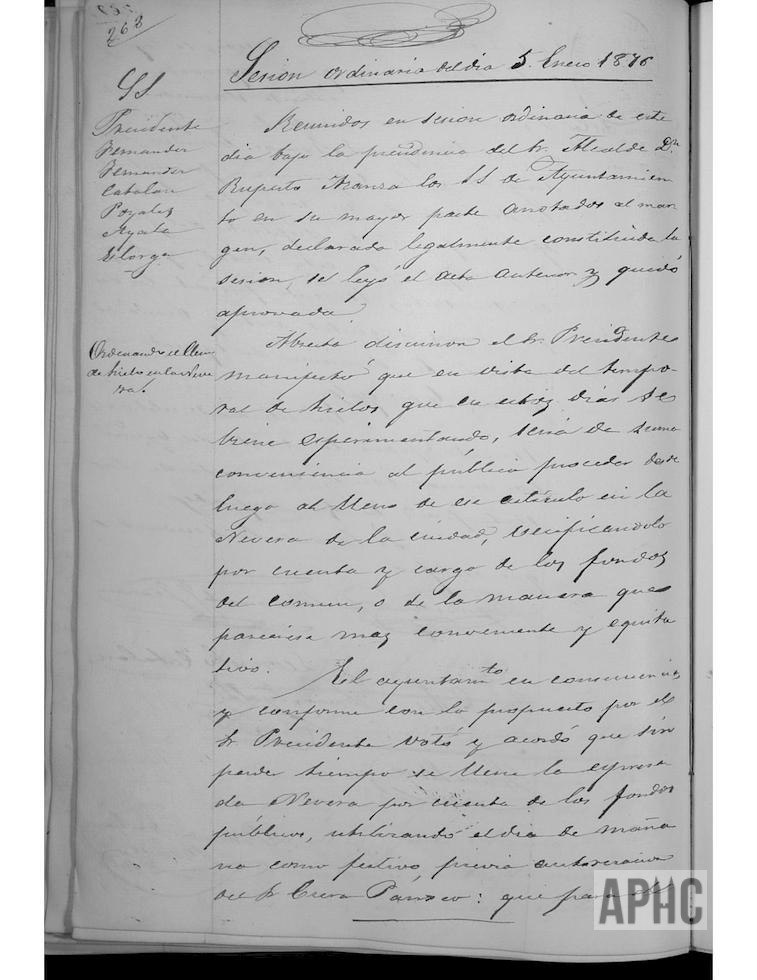 268
Sesion ordinaria del dia 5 Enero 1876
SS
Presidente
Fernandez
Fernandez
Catalan
Poyales
Ayala
Elorga
Reunidos en sesion ordinaria de este
dia bajo la presidencia del Sr. Alcalde Dn
Ruperto Aranza los SS de Ayuntamien
to en su mayor parte anotados al mar
gen, declarada legalmente constituida la
sesion, se leyó el acta anterior y quedó
aprovada
Ordenando el lleno
de hielo en la Neve
ra.
Abierta discusion el Sr. Presidente
manifestó que en vista del tempo-
ral de hielos que en estos dias se
viene esperimentando, será de suma
conveniencia al público proceder desde
luego al lleno de ese articulo en la
Nevera de la ciudad, verificandolo
por cuenta y cargo de los fondos
del comun, o de la manera que
pareciese mas conveniente y equita
tivo. El ayuntamto en consecuencia
y conforme con lo propuesto por el
Sr Presidente votó y acordó que sin
perder tiempo se llene la espresa
da Nevera por cuenta de los fondos
públicos, utilizando el dia de maña
na como festivo, previa autorizacion
del Sr Cura Párroco: que para el
APHC